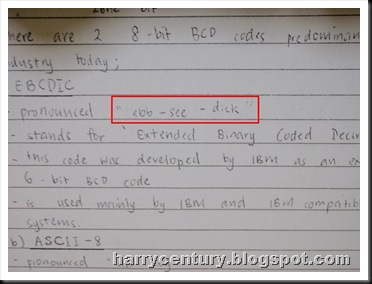 zone bit
here are 2 8-bit BCD codes predominan
ndustry today;
EBCDIC
- pronounced " ebb - see - dick "
- stands for 'Extended Binary Coded Decim
- this code was developed by IBM as an ex
6-bit BCD code
- is used mainly by IBM and IBM compatib
systems.
b) ASCII-8
- pronounced -
harrycentury.blogspot.com